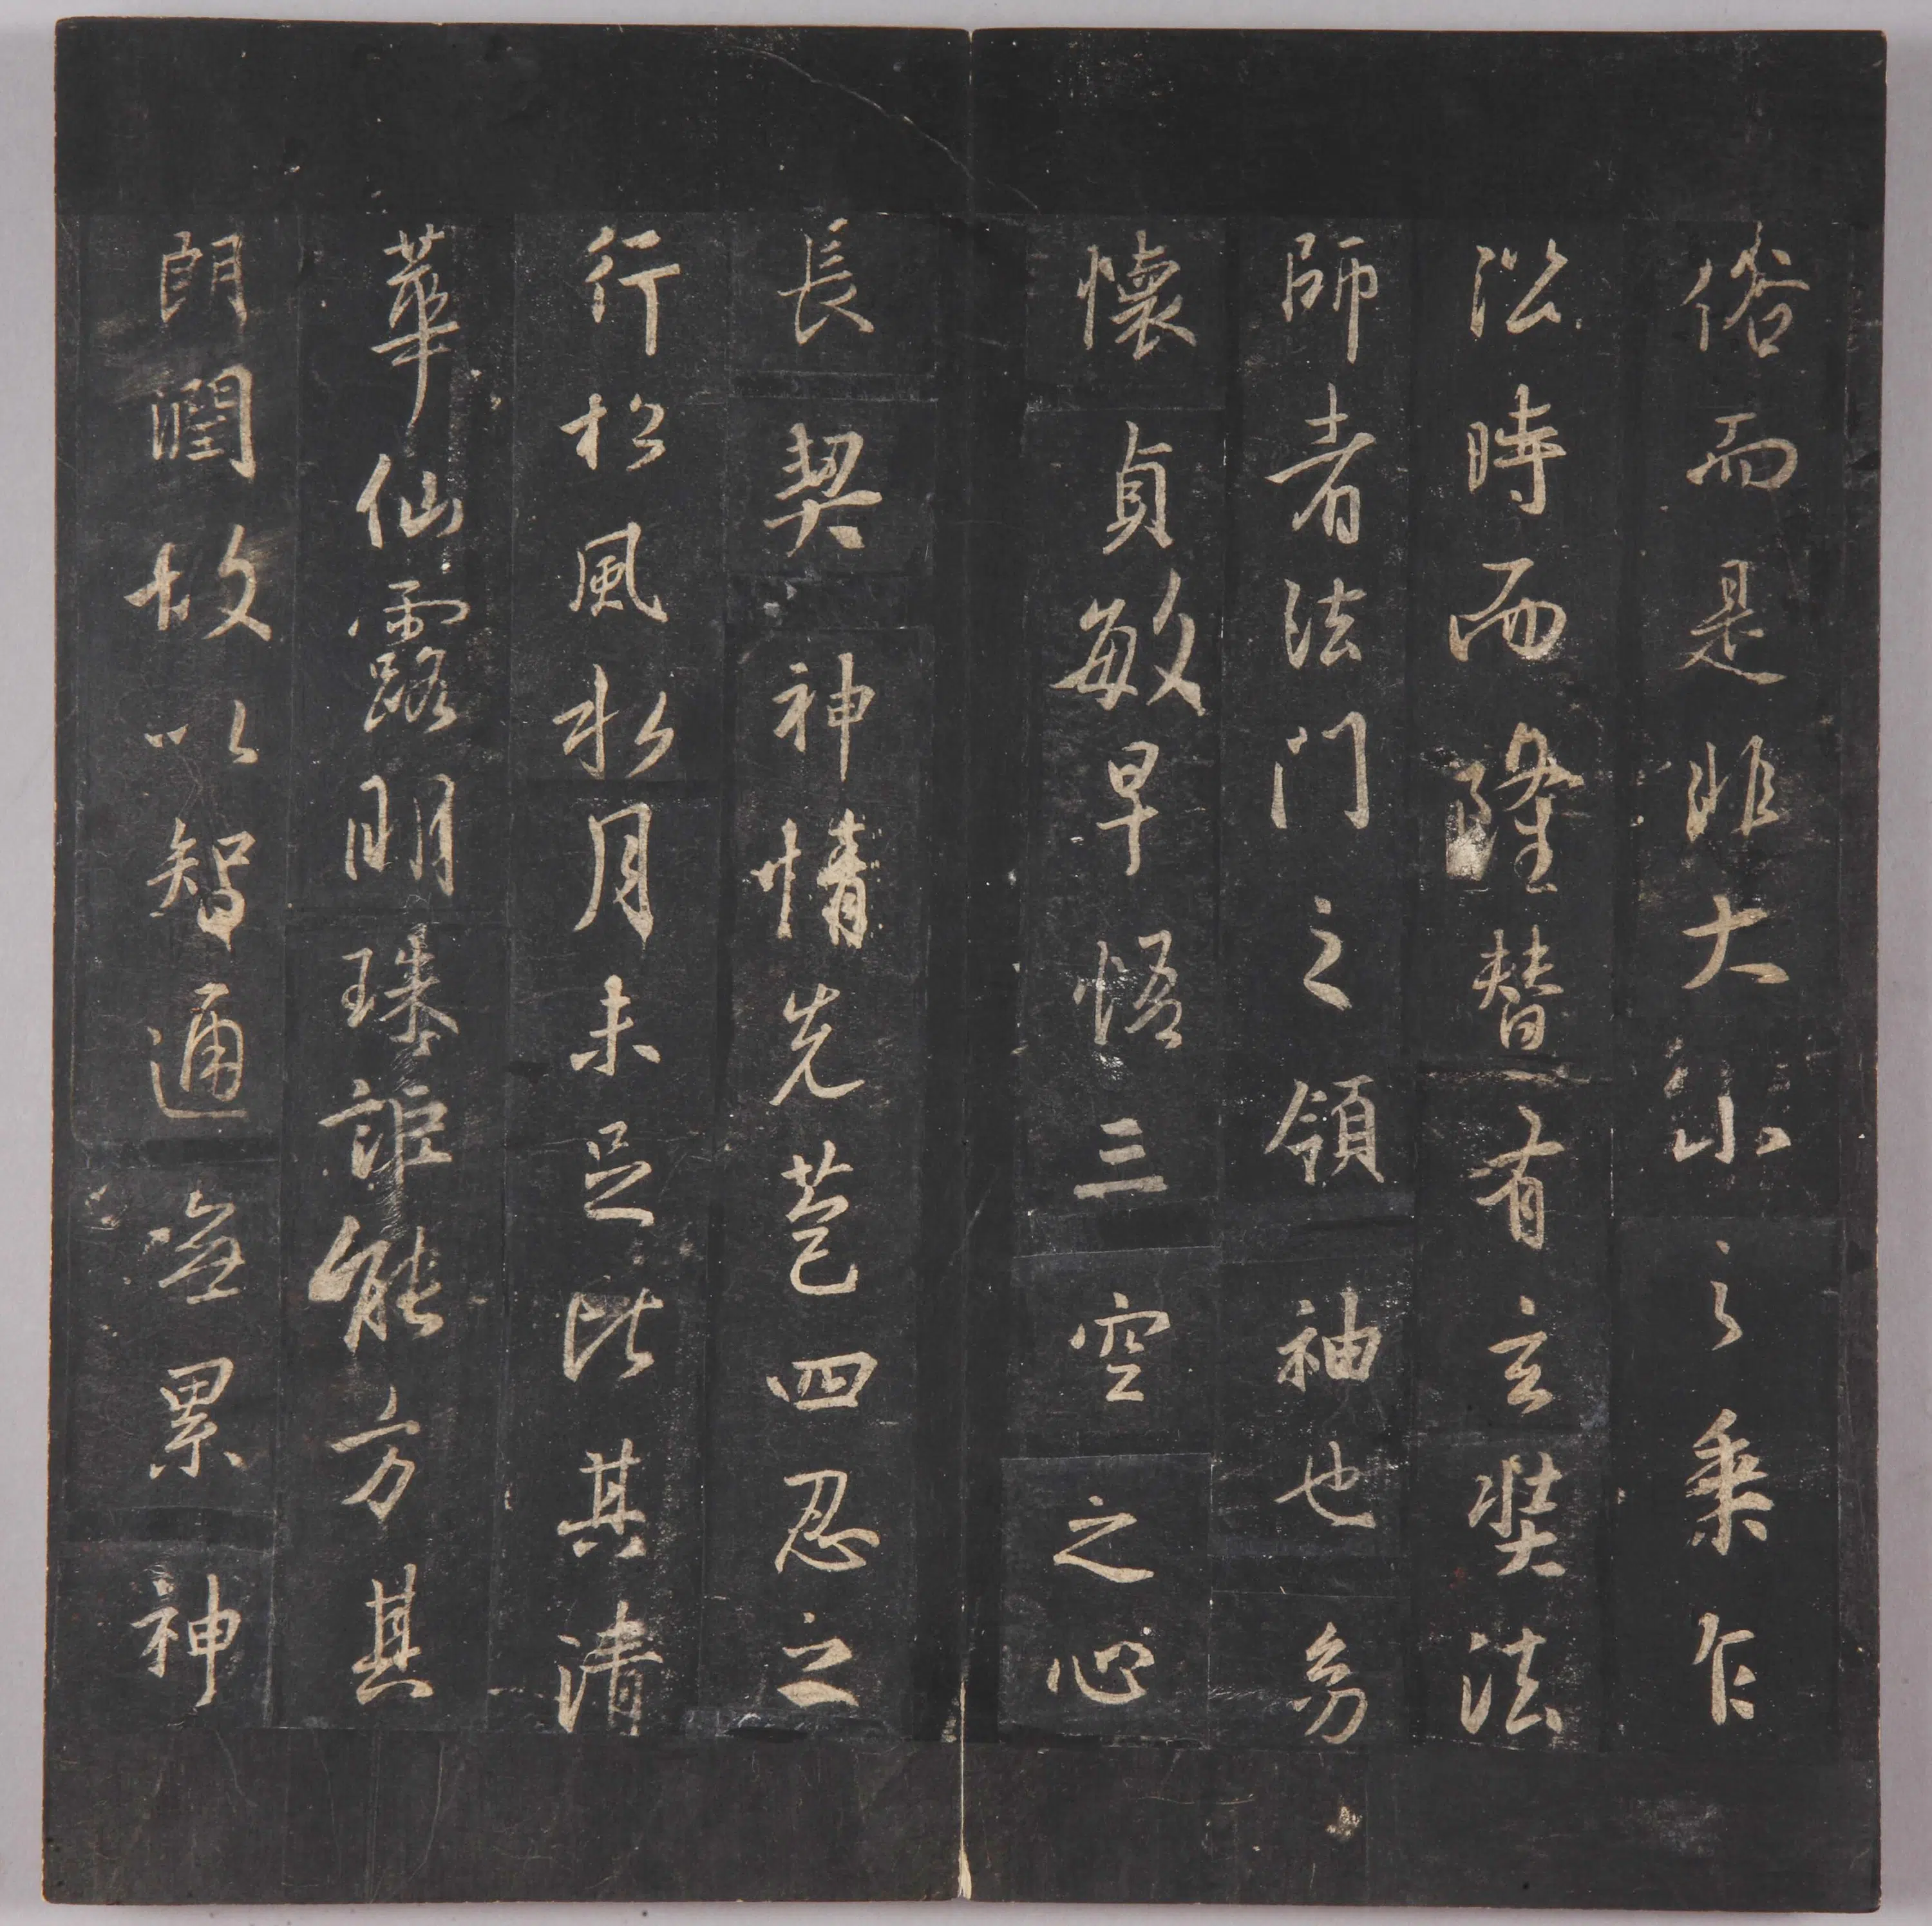 俗而是非大小之乘乍
沿時而隆替有玄奘法
師者法門之領袖也幼
懷貞敏早悟三空之心
長契神情先苞四忍之
行松風水月未足比其清
華仙露明珠詎能方其
朗潤故以智通無累神